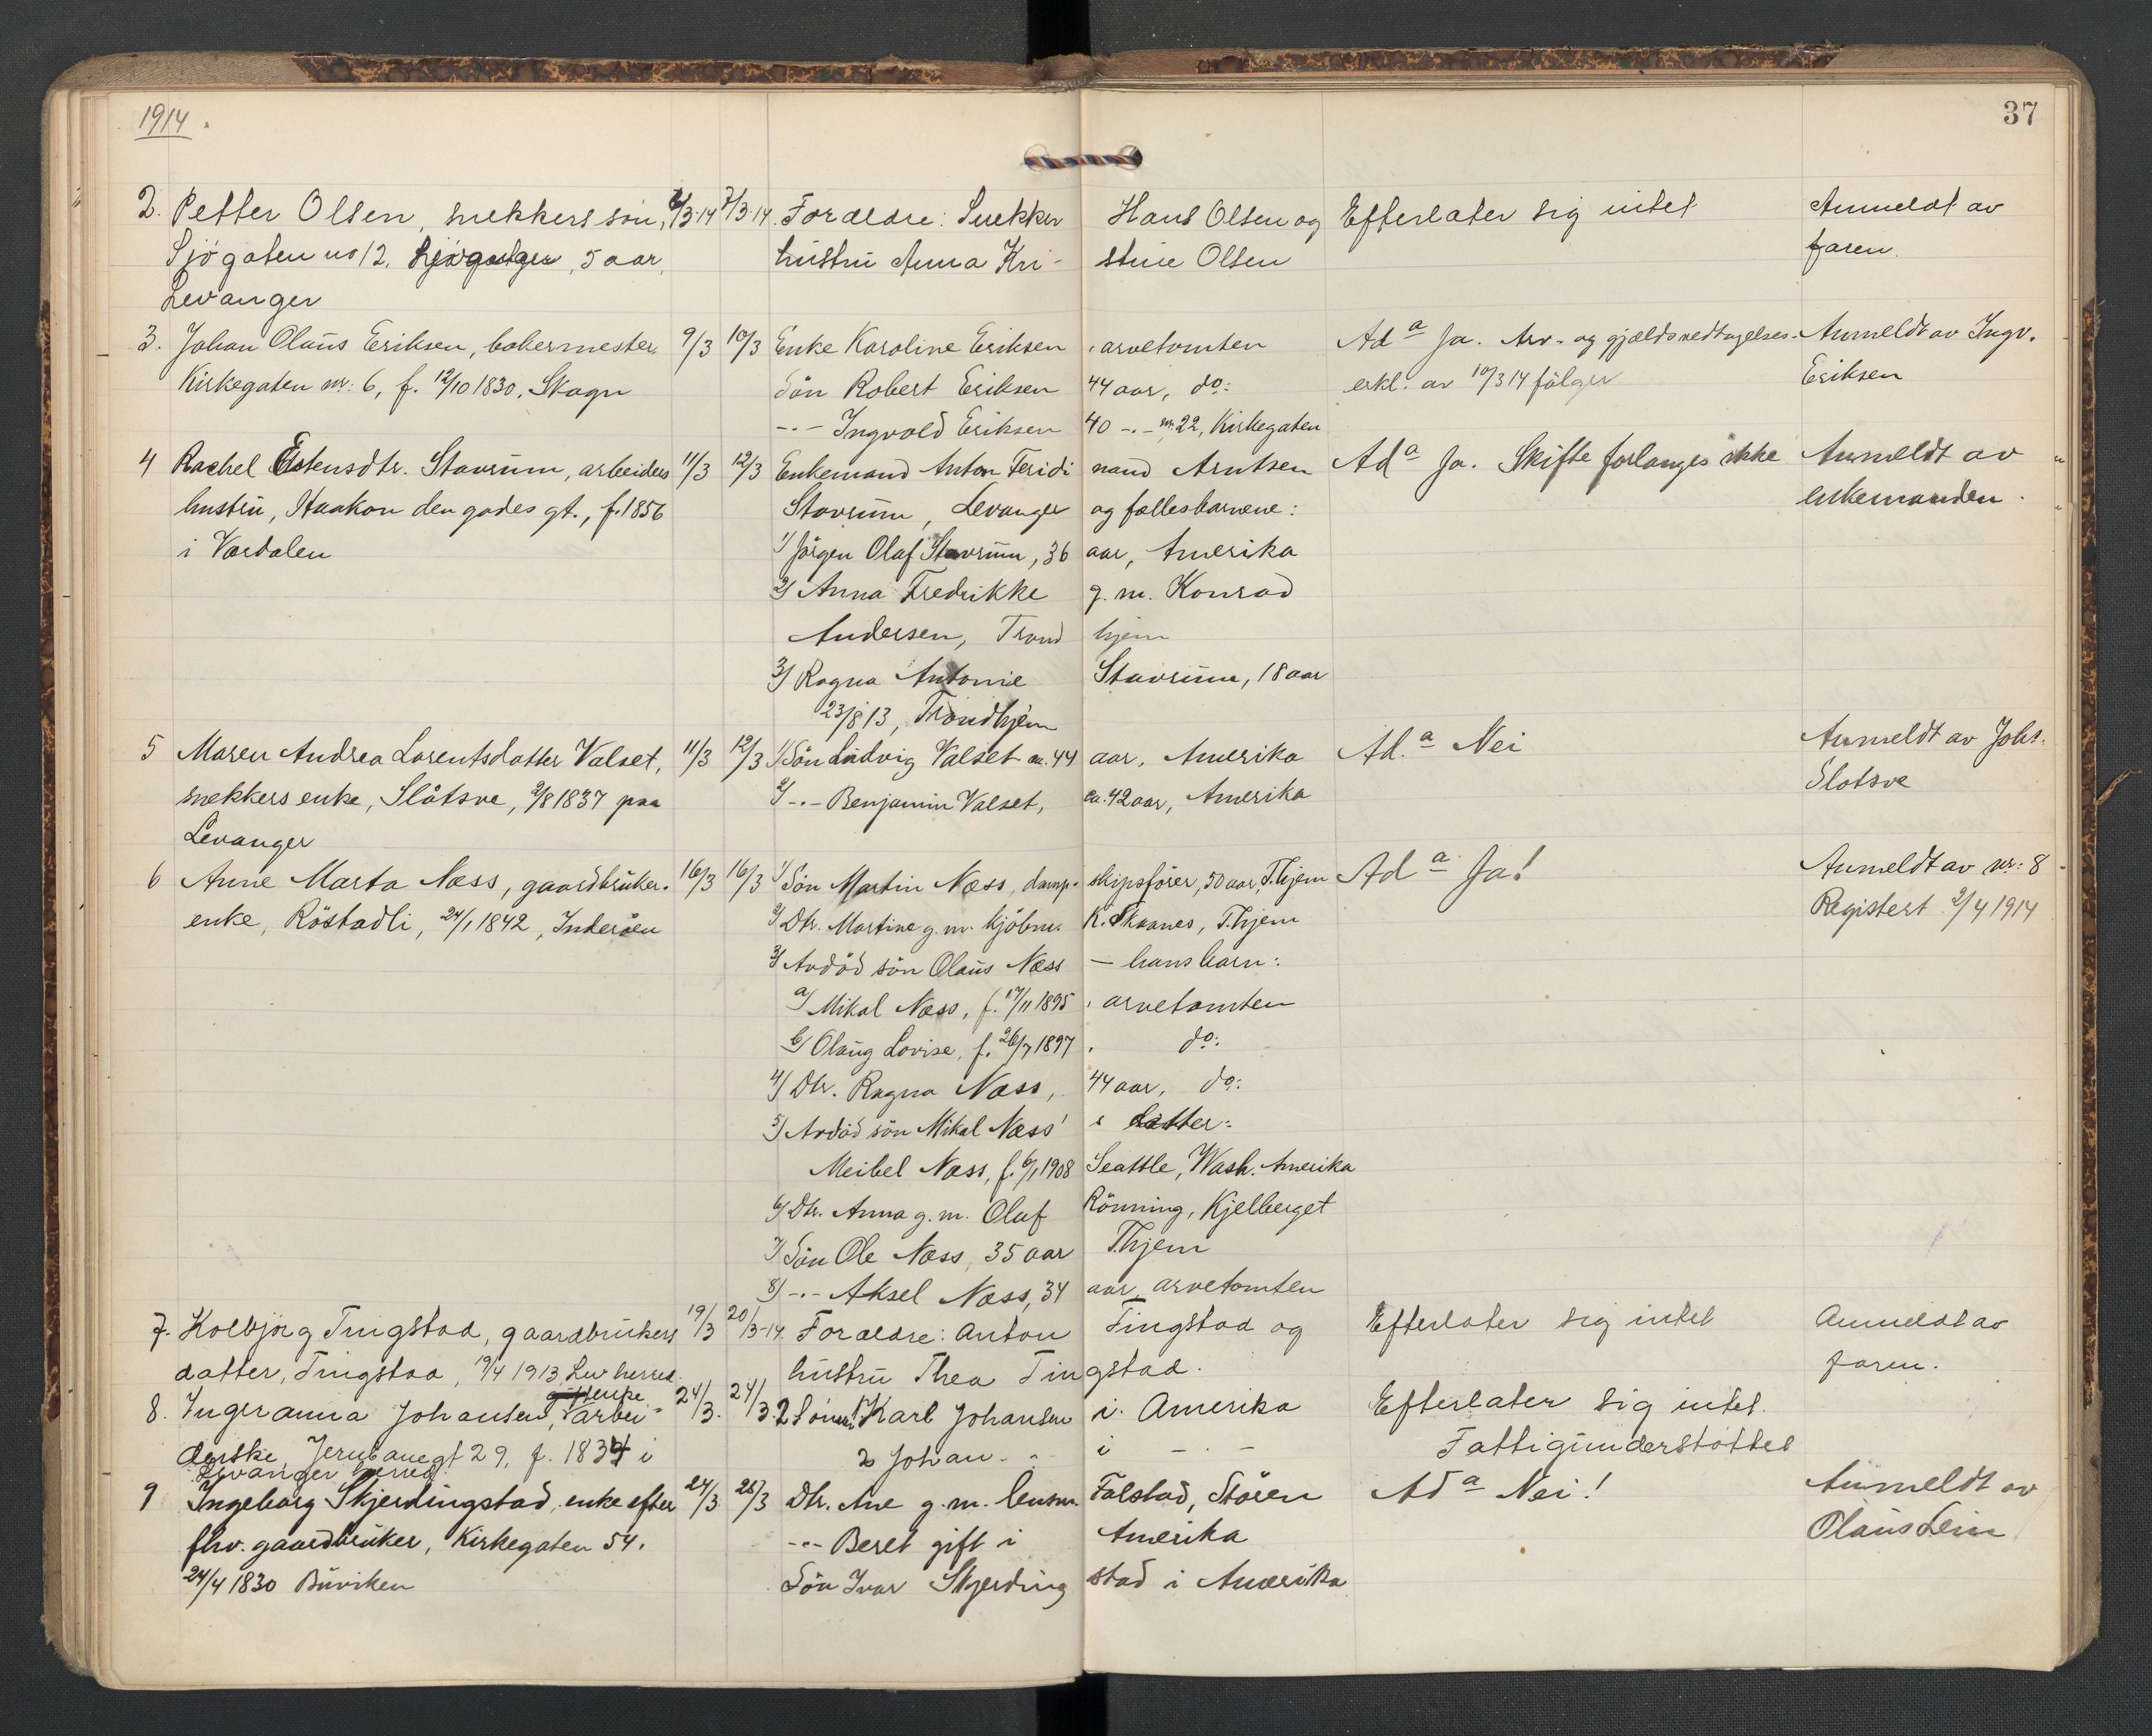 1914.
37
2. Petter Olsen, snekkers sön, 6/3-14 7/3-14. Forældre: Snekker Hans Olsen og Efterlater sig intet Anmeldt av
Sjögaten no 12, 5 aar, hustru Anna Kri- stine Olsen faren.
Levanger
3. Johan Olaus Eriksen, bakermester, 9/3 10/3 Enke Karoline Eriksen, arvetomten Ad a Ja. Arv- og gjældsvedtagelses- Anmeldt av Ingv.
Kirkegaten nr: 6, f. 12/10 1830, Skogn Sön Robert Eriksen 44 aar, do: erkl. av 10/3 14 følger Eriksen
-"- Ingvald Eriksen 40 -"- nr. 22, Kirkegaten
4 Rachel Estensdtr. Stavrum, arbeiders 11/3 12/3 Enkemand Anton Ferdi nand Arntsen Ad a Ja. Skifte forlanges ikke Anmeldt av
hustru, Haakon den godes gt., f. 1856 Stavrum, Levanger og fællesbarnene: enkemanden.
i Værdalen 1/ Jörgen Olaf Stavrum, 36 aar, Amerika
2/ Anna Fredrikke g. m. Konrad
Andersen, Trond hjem
3/ Ragna Antonie Stavrum, 18 aar
23/8 13, Trondhjem
5 Maren Andrea Lorentsdatter Valset, 11/3 12/3 1/ Sön Ludvig Valset ca. 44 aar, Amerika Ad. a Nei Anmeldt av Johs.
snekkers enke, Slåtsve, 2/8 1837 paa 2/ -"- Benjamin Valset, ca. 42 aar, Amerika Slotsve
Levanger
6 Anne Marta Næss, gaardbruker- 16/3 16/3 1/ Sön Martin Næss, damp- skipsförer, 50 aar, T.hjem Ad a Ja! Anmeldt av nr: 8
enke, Röstadli, 24/1 1842, Inderöen 2/ Dtr. Martine g. m. kjöbm. K. Skaanes, T.hjem Registert 2/4 1914
3/ Avdöd sön Olaus Næss — hans barn:
a/ Mikal Næss, f. 17/11 1895, arvetomten
b/ Olaug Lovise, f. 26/7 1897, do:
4/ Dtr. Ragna Næss, 44 aar, do:
5/ Avdöd sön Mikal Næss' datter:
Meibel Næss, f. 6/1 1908 Seattle, Wash. Amerika
6/ Dtr. Anna g. m. Olaf Rönning, Kjelberget
7/ Sön Ole Næss, 35 aar T.hjem
8/ -"- Aksel Næss, 34 aar, arvetomten
7. Kolbjörg Tingstad, gaardbrukers 19/3 20/3-14. Forældre: Anton Tingstad og Efterlater sig intet Anmeldt av
datter, Tingstad, 19/4 1913, Lev herred. hustru Thea Tingstad. faren.
enke
8. Ingeranna Johansen, arbei- 24/3. 24/3. 2 Sönner 1 Karl Johansen i Amerika Efterlater sig intet.
derske Jernbanegt 29, f. 1834 i 2 Johan -"- i -"- Fattigunderstöttet
Levanger herred
9 Ingeborg Skjerdingstad, enke efter 24/3 25/3 Dtr. Ane g. m. Falstad, Stören Ad a Nei! Anmeldt av
fhv. gaardbruker, Kirkegaten 54. -"- Beret gift i Amerika Olaus Lein
24/4 1830 Buviken Sön Ivar Skjerding stad i Amerika